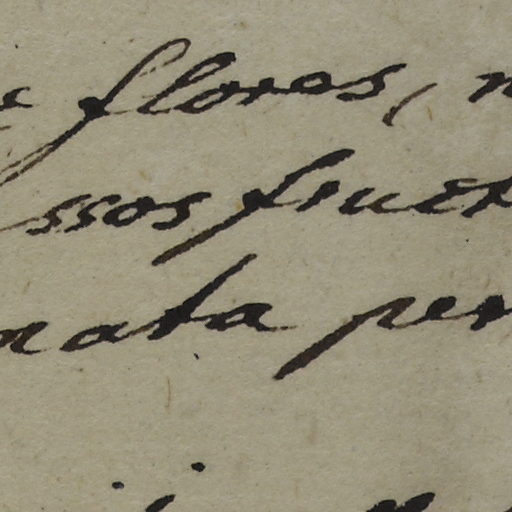 e flores, n
ssos fruct
mata per